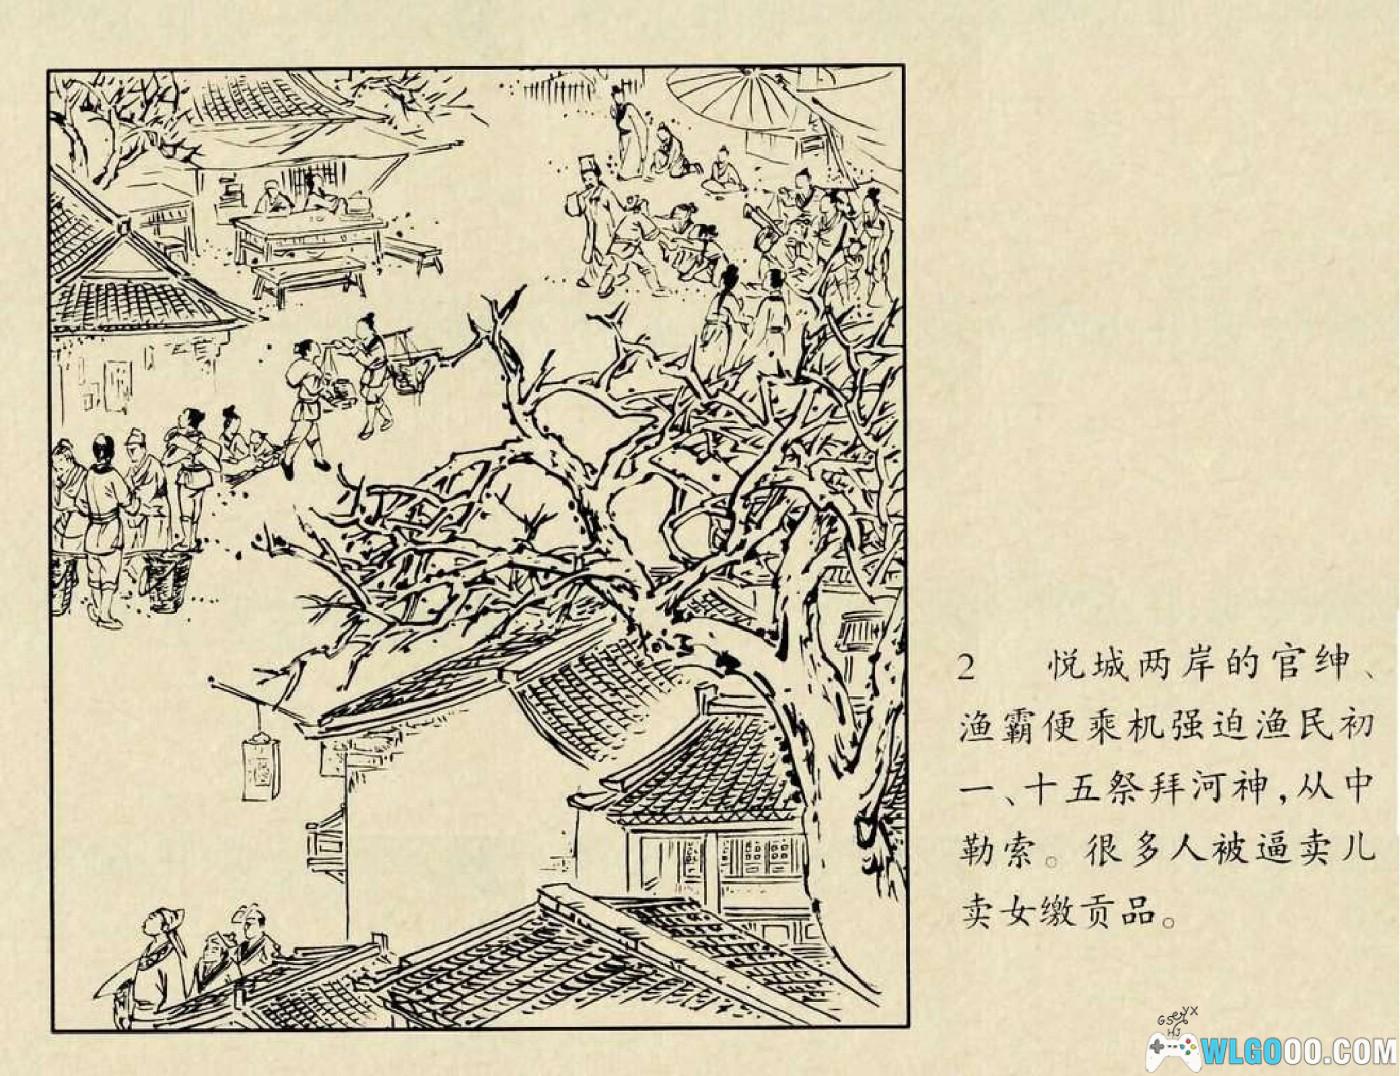 2 悦城两岸的官绅、
渔霸便乘机强迫渔民初
一、十五祭拜河神，从中
勒索。很多人被逼卖儿
卖女缴贡品。
GSeyx
HJ
WLGOOO.COM